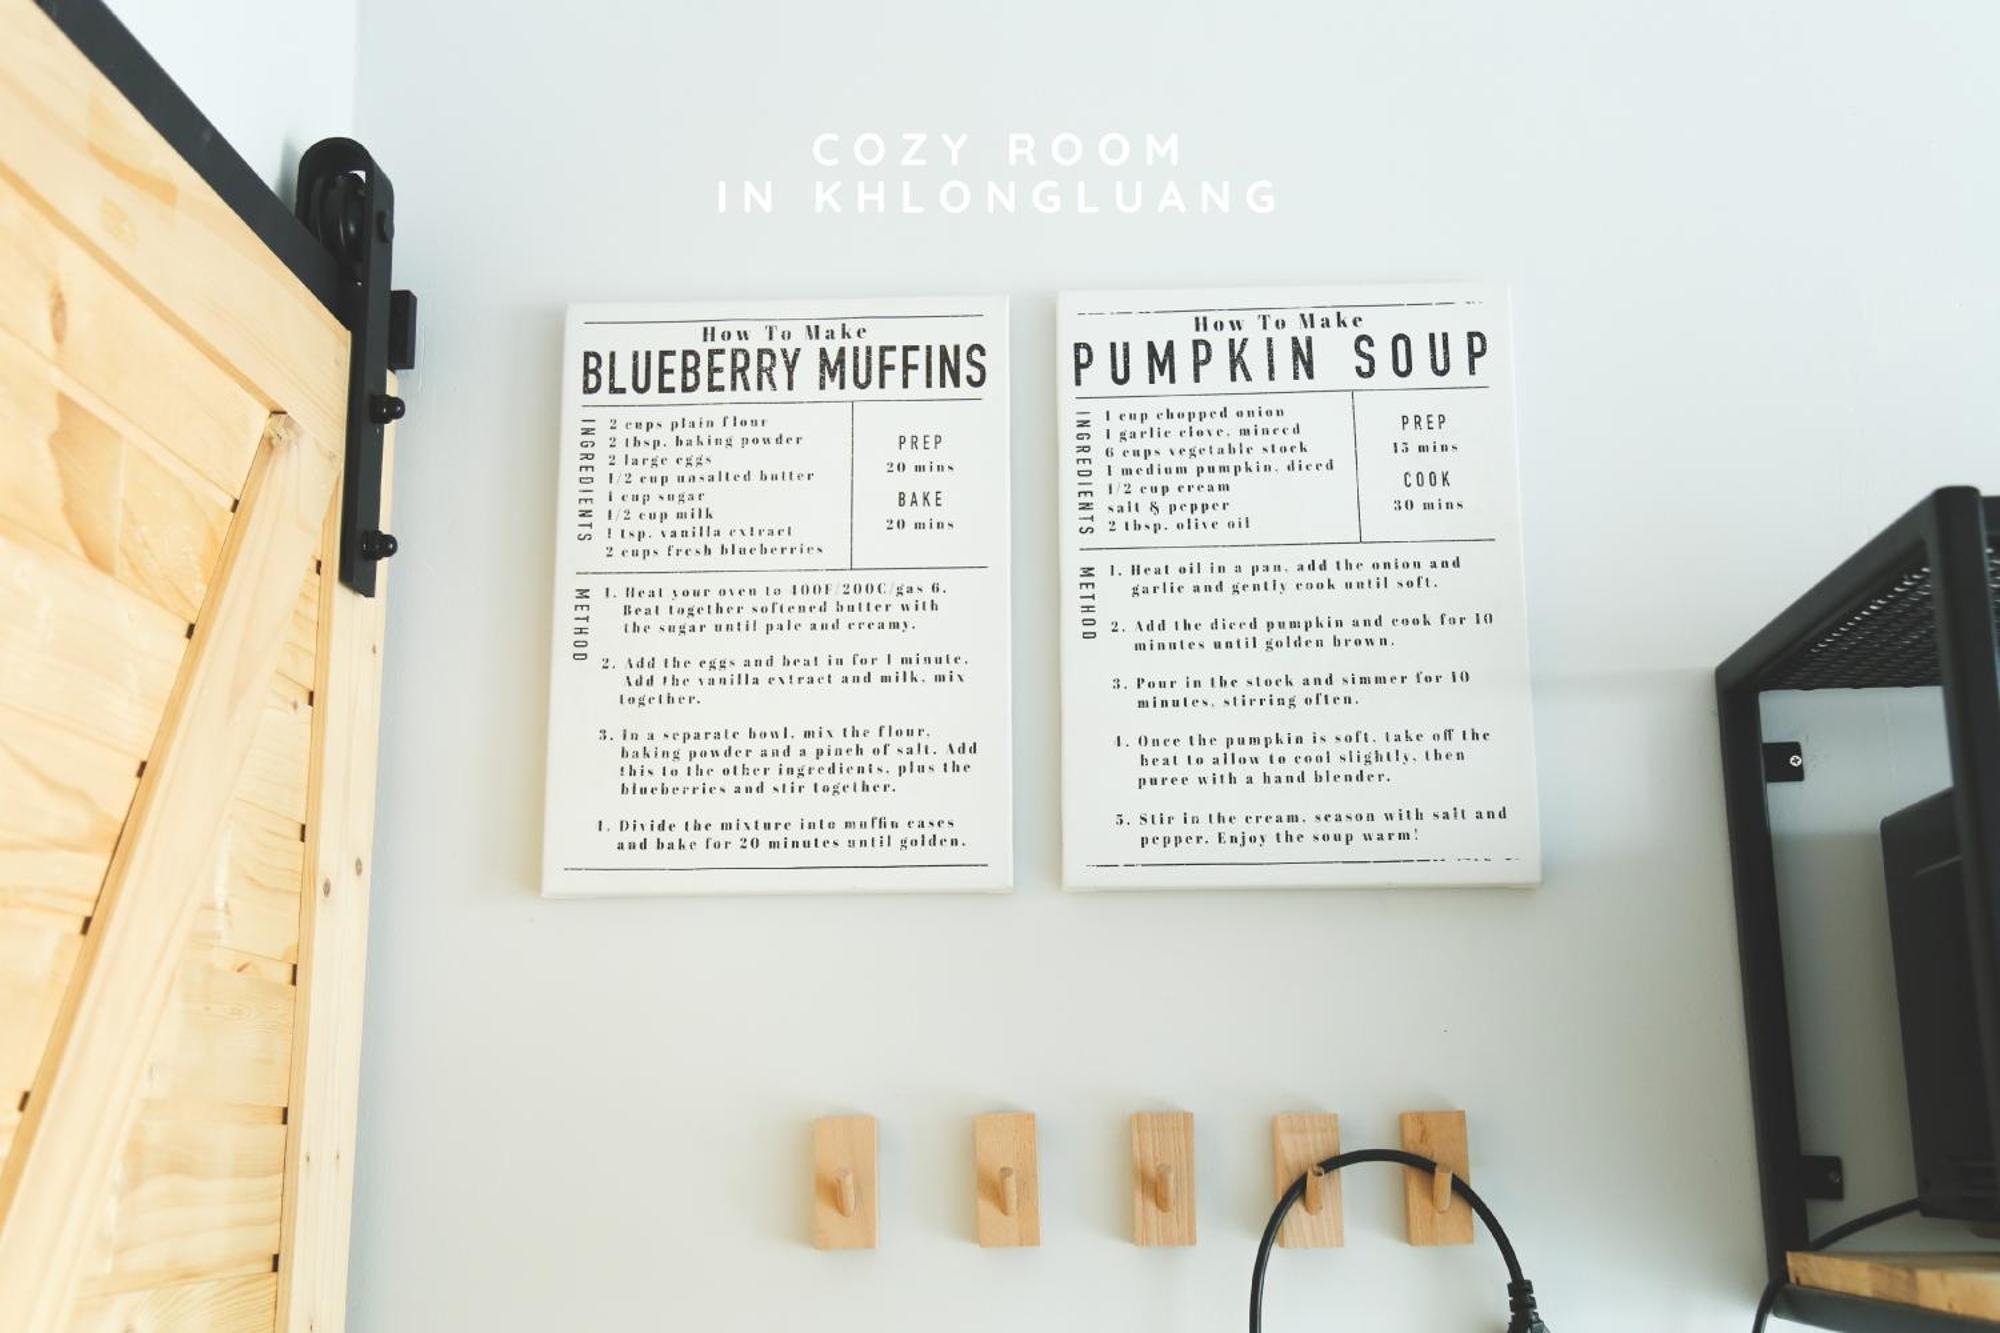 COZY ROOM
IN KHLONGLUANG
How To Make
BLUEBERRY MUFFINS
INGREDIENTS
2 cups plain flour
2 tbsp. baking powder
2 large eggs
1/2 cup unsalted butter
1 cup sugar
1/2 cup milk
1 tsp. vanilla extract
2 cups fresh blueberries
PREP
20 mins
BAKE
20 mins
METHOD
1. Heat your oven to 400F/200C/gas 6.
Beat together softened butter with
the sugar until pale and creamy.
2. Add the eggs and beat in for 1 minute.
Add the vanilla extract and milk, mix
together.
3. In a separate bowl, mix the flour,
baking powder and a pinch of salt. Add
this to the other ingredients, plus the
blueberries and stir together.
4. Divide the mixture into muffin cases
and bake for 20 minutes until golden.
How To Make
PUMPKIN SOUP
INGREDIENTS
1 cup chopped onion
1 garlic clove, minced
6 cups vegetable stock
1 medium pumpkin, diced
1/2 cup cream
salt & pepper
2 tbsp. olive oil
PREP
15 mins
COOK
30 mins
METHOD
1. Heat oil in a pan, add the onion and
garlic and gently cook until soft.
2. Add the diced pumpkin and cook for 10
minutes until golden brown.
3. Pour in the stock and simmer for 10
minutes, stirring often.
4. Once the pumpkin is soft, take off the
heat to allow to cool slightly, then
puree with a hand blender.
5. Stir in the cream, season with salt and
pepper. Enjoy the soup warm!